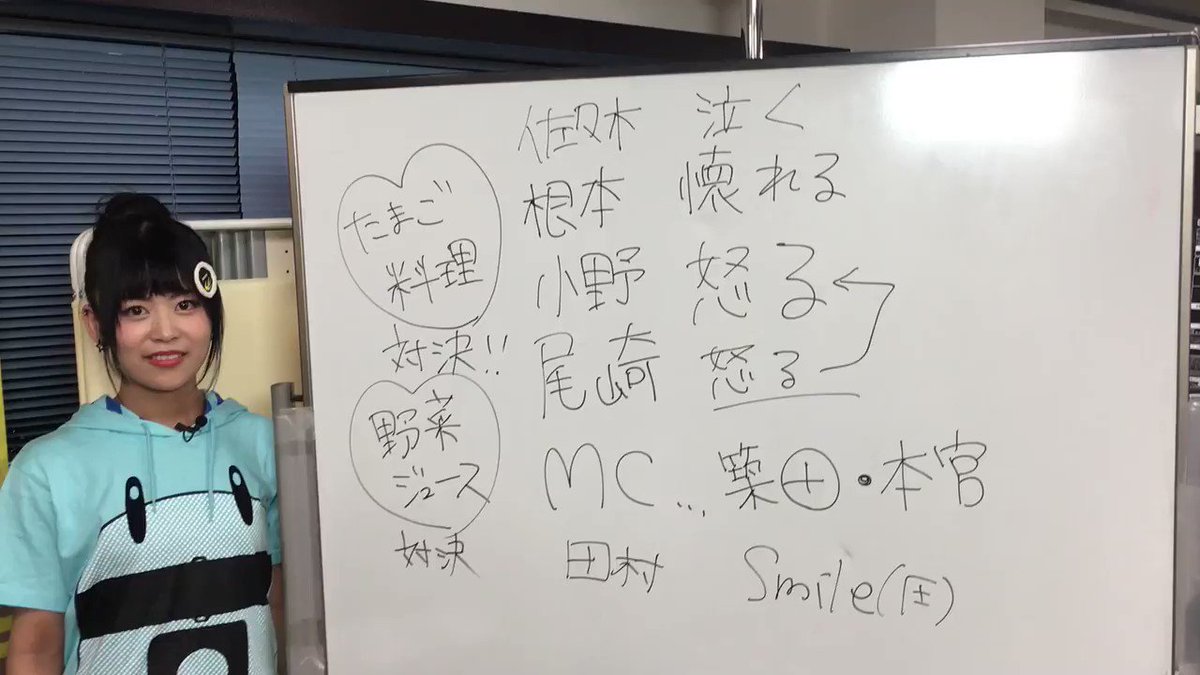 たまご
料理
対決!!
野菜
ジュース
対決
佐々木 泣く
根本 懐れる
小野 怒る
尾崎 怒る
MC... 築田・本官
田村 Smile(圧)